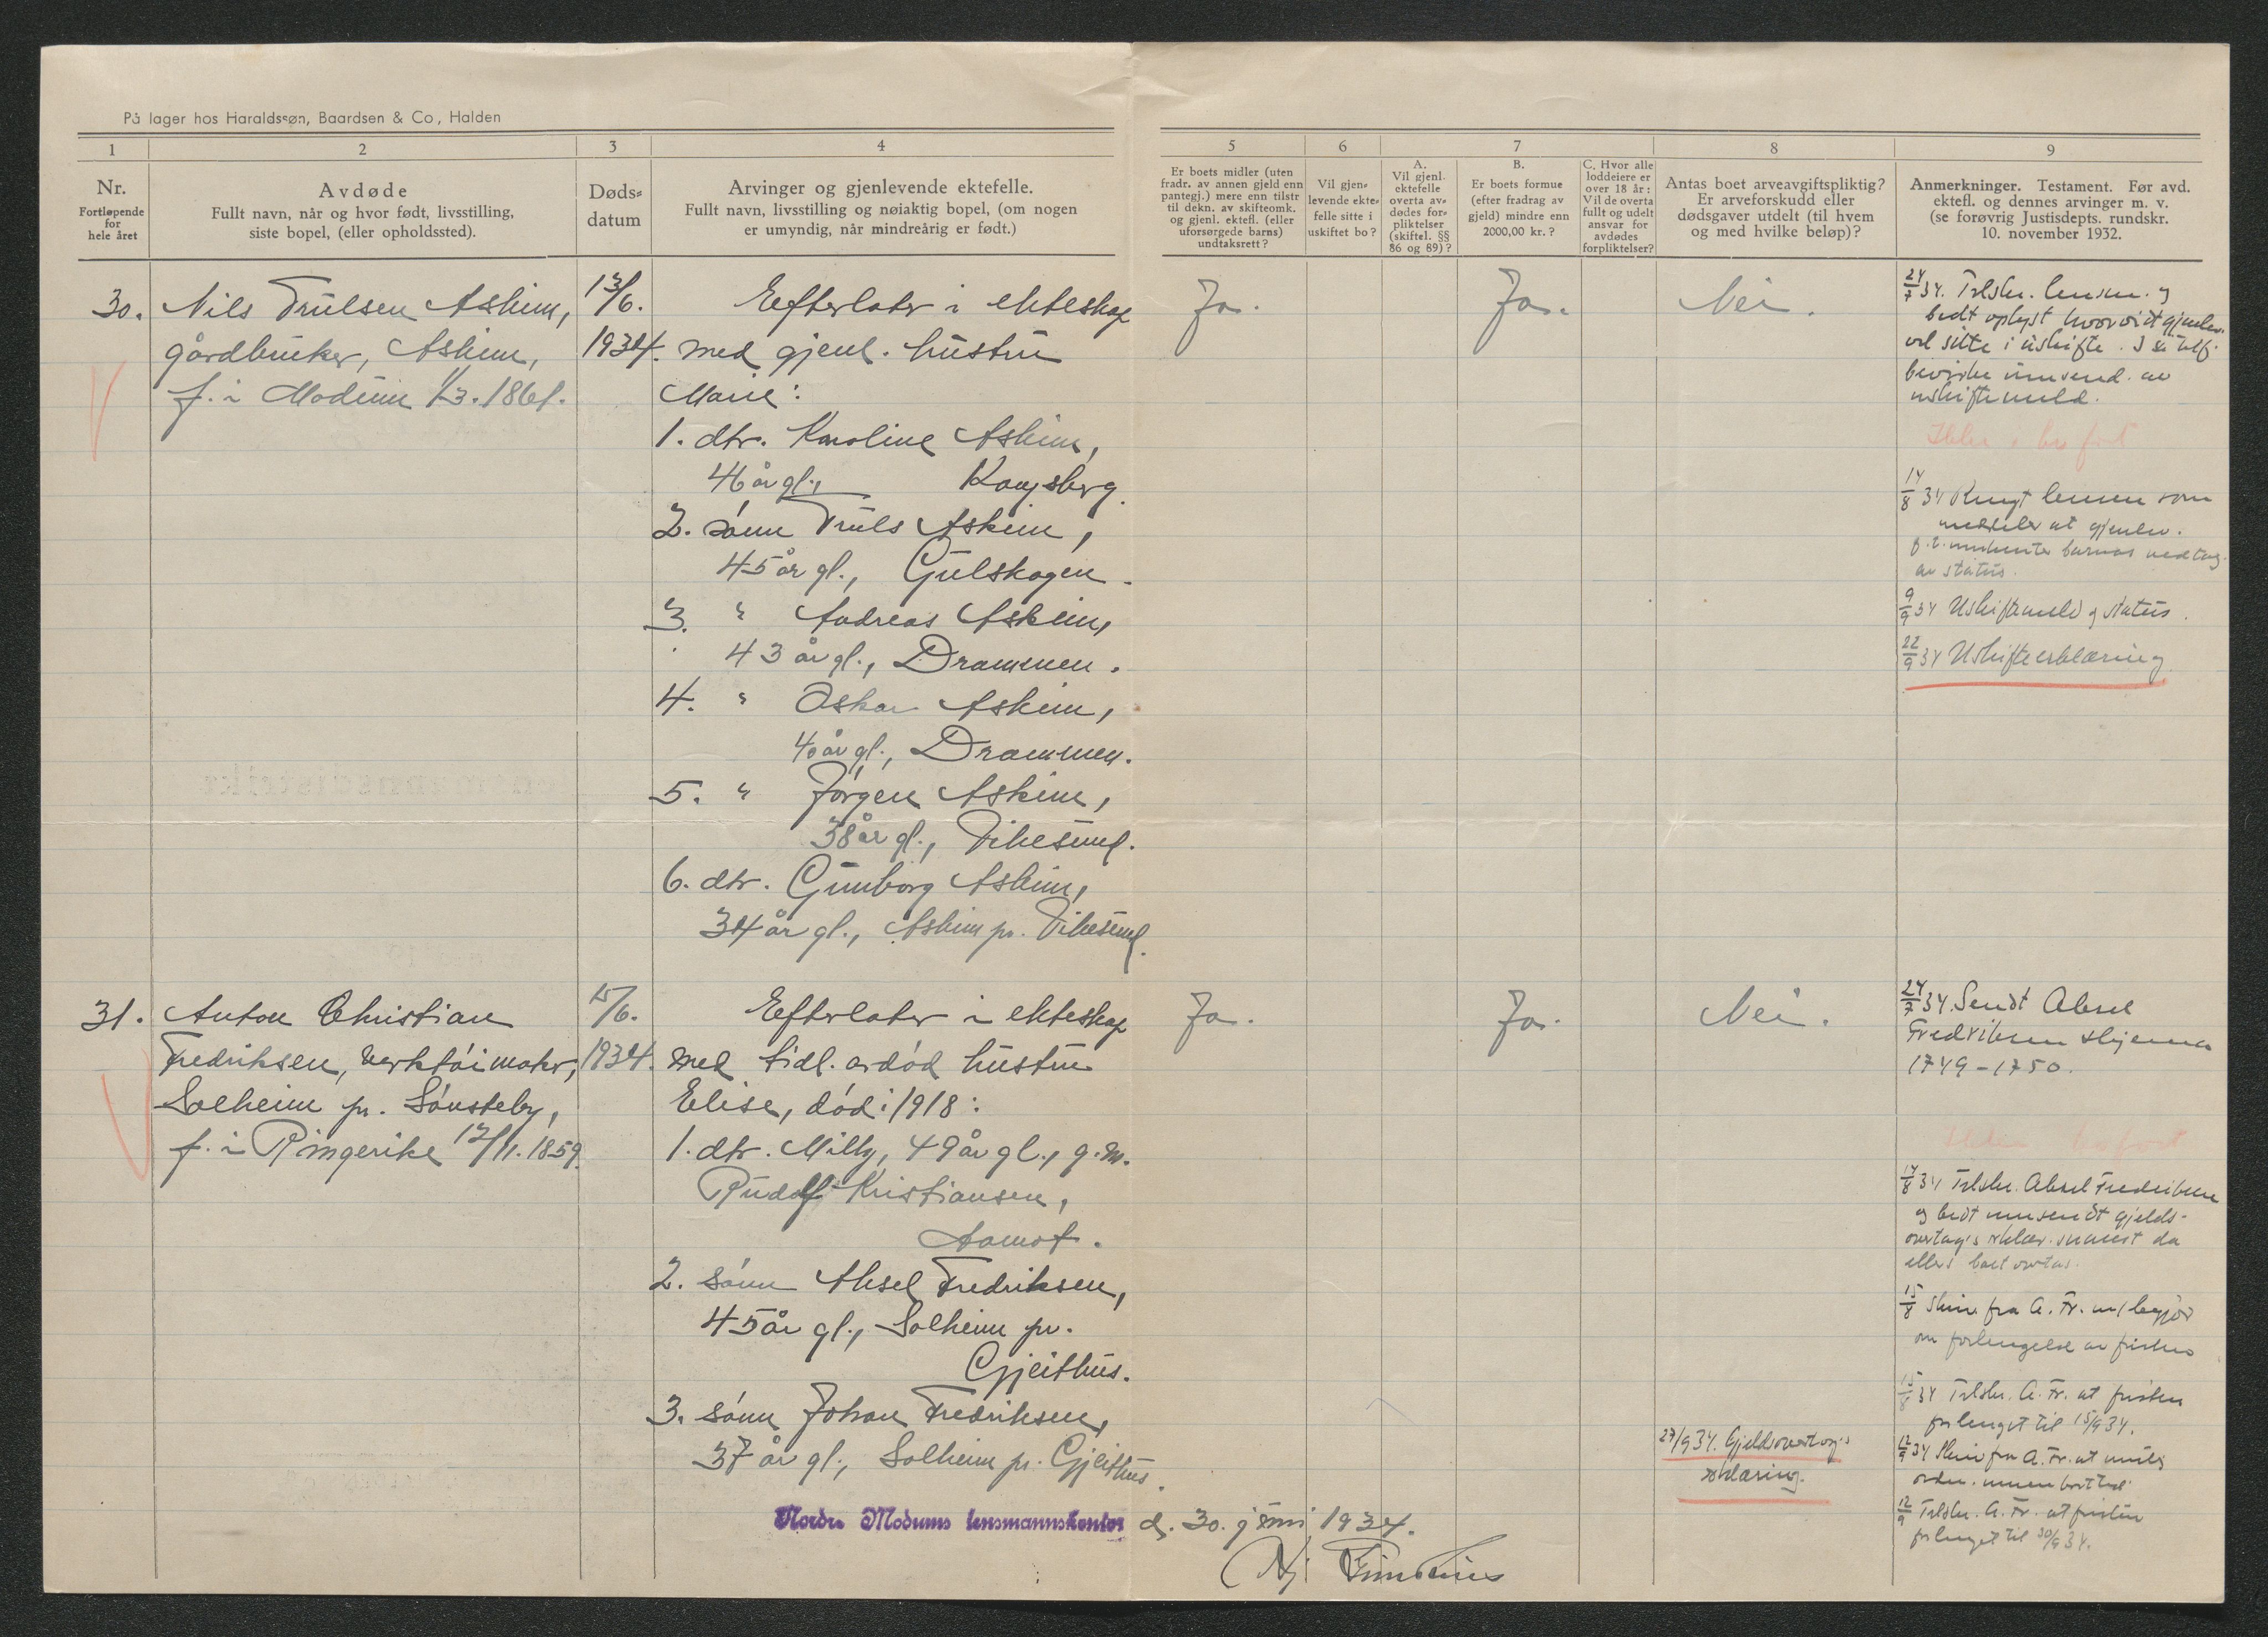 På lager hos Haraldssøn, Baardsen & Co, Halden
1
2
3
4
5
6
7
8
9
Nr.
Fortløpende
for
hele året
Avdøde
Fullt navn, når og hvor født, livsstilling,
siste bopel, (eller opholdssted).
Døds-
datum
Arvinger og gjenlevende ektefelle.
Fullt navn, livsstilling og nøiaktig bopel, (om nogen
er umyndig, når mindreårig er født.)
Er boets midler (uten
fradr. av annen gjeld enn
pantegj.) mere enn tilstr
til dekn. av skifteomk.
og gjenl. ektefl. (eller
uforsørgede barns)
undtaksrett?
Vil gjen-
levende ekte-
felle sitte i
uskiftet bo?
A.
Vil gjenl.
ektefelle
overta av-
dødes for-
pliktelser
(skiftel. §§
86 og 89)?
B.
Er boets formue
(efter fradrag av
gjeld) mindre enn
2000,00 kr.?
C. Hvor alle
loddeiere er
over 18 år:
Vil de overta
fullt og udelt
ansvar for
avdødes
forpliktelser?
Antas boet arveavgiftspliktig?
Er arveforskudd eller
dødsgaver utdelt (til hvem
og med hvilke beløp)?
Anmerkninger. Testament. Før avd.
ektefl. og dennes arvinger m. v.
(se forøvrig Justisdepts. rundskr.
10. november 1932.
30. Nils Trulsen Askim,
gårdbruker, Askim,
f. i Modum 1/3. 1861.
13/6.
1934.
Efterlater i ekteskap
med gjenl. hustru
Marie:
1. dtr. Karoline Askim,
46 år gl., Kongsberg.
2. sønn Truls Askim,
45 år gl., Gulskogen.
3. " Andreas Askim,
43 år gl., Drammen.
4. " Oskar Askim,
40 år gl., Drammen.
5. " Jørgen Askim,
38 år gl., Vikesund.
6. dtr. Gunborg Askim,
34 år gl., Askim pr. Vikesund.
Ja.
Ja.
Nei.
24/7 34. Tilskr. lensm. og
bedt oplyst hvorvidt gjenlev.
vil sitte i uskifte. I så tilf.
bevirke innsend. av
uskiftemeld.
14/8 34 Ringt lensm som
meddeler at gjenlev.
av status.
9/9 34 Uskiftemeld og status.
22/9 34 Uskifteerklæring
31. Anton Christian
Fredriksen, verktøimaker,
Solheim pr. Sønsteby,
f. i Ringerike 12/11. 1859.
15/6.
1934.
Efterlater i ekteskap
med tidl. avdød hustru
Elise, død i 1918:
1. dtr. Milly, 49 år gl., g. m.
Rudolf Kristiansen,
Aamot.
2. sønn Aksel Fredriksen,
45 år gl., Solheim pr.
Gjeithus.
3. sønn Johan Fredriksen,
37 år gl., Solheim pr. Gjeithus.
Ja.
Ja.
Nei.
27/9 34. Gjeldsovertag's
erklæring.
24/7 34. Sendt Aksel
Fredriksen skjema
1749-1750.
14/8 34 Tilskr. Aksel Fredriksen
og bedt innsendt gjelds-
overtag's erklær. snarest da
ellers boet overtas.
15/8 Skriv fra A. Fr. m/ begjær
om forlengelse av fristen
15/8 34 Tilskr. A. Fr. at fristen
forlenget til 15/9 34.
12/9 34 Skriv fra A. Fr. at
12/9 Tilskr. A. Fr. at fristen
forlenget til 30/9 34.
Nordre Modums lensmannskontor d. 30. juni 1934.